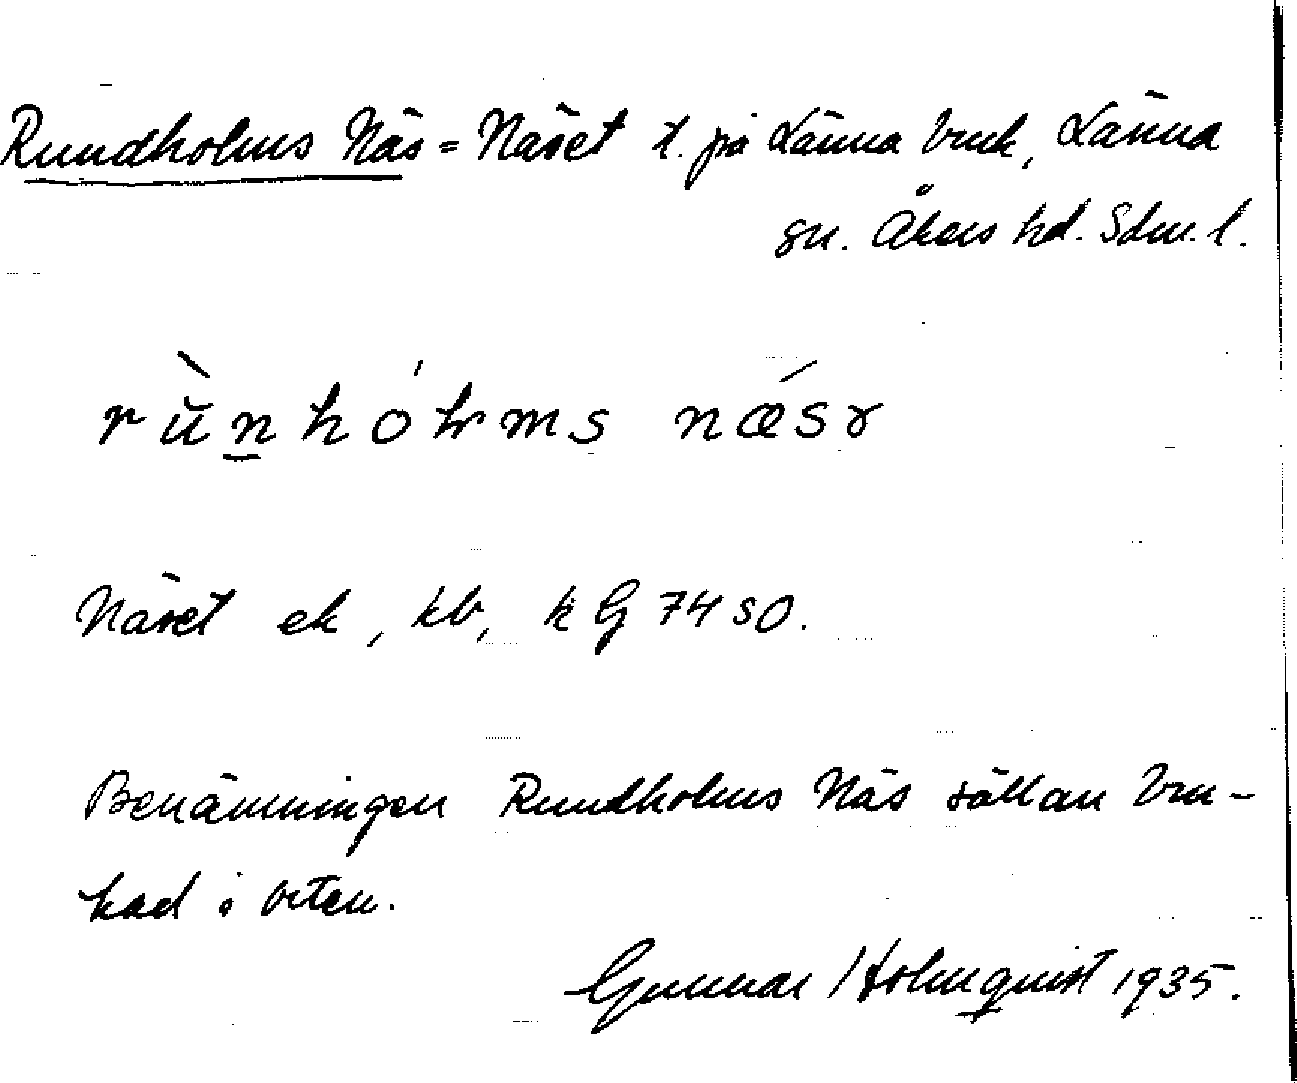 Rundholms Näs = Näset t. på Länna bruk, Länna
sn. Åkers hd. Sdm. l.
rùn̲hólms næ̀sɤ
Näset ek, kb, k G 7450.
Benämningen Rundholms Näs sällan bru-
kad i orten.
Gunnar Holmquist 1935.